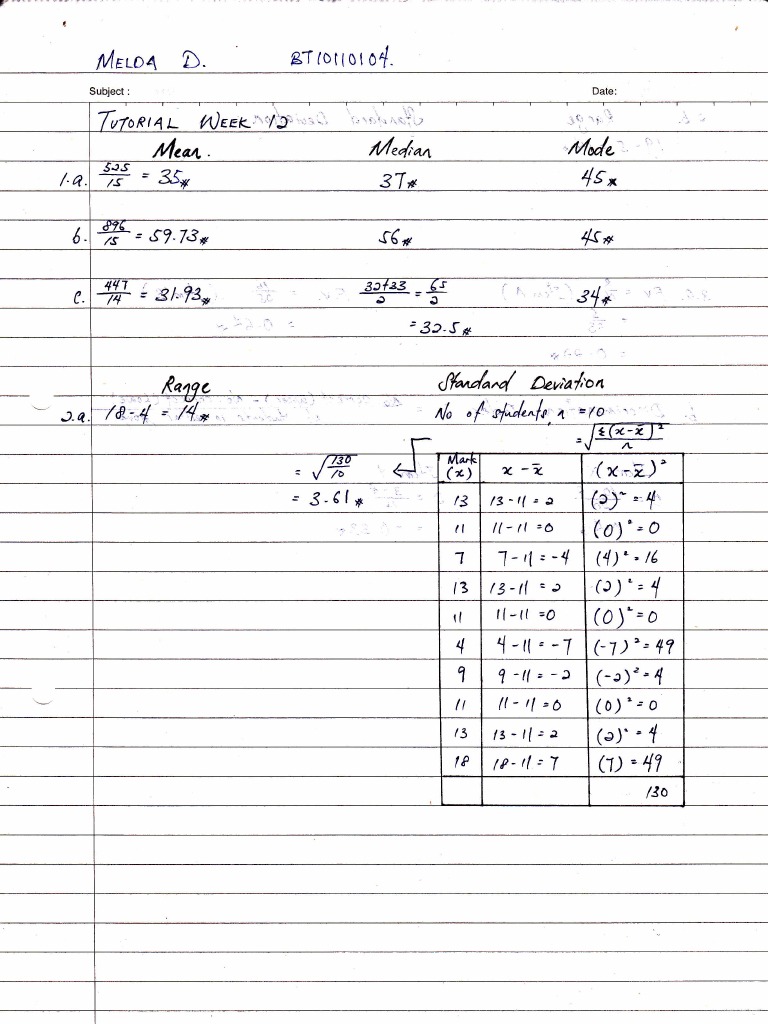 MELDA D. BT10110104.
Subject : Date:
TUTORIAL WEEK 12
Mean. Median Mode
1.a. 525/15 = 35 37 45
b. 896/15 = 59.73 56 45
c. 447/14 = 31.93 32+33/2 = 65/2 34
= 32.5
Range Standard Deviation
2.a. 18-4 = 14 No of students, n = 10
= √Σ(x-x̄)²/n
= √130/10
= 3.61
Mark (x) x - x̄ (x-x̄)²
13 13-11 = 2 (2)² = 4
11 11-11 = 0 (0)² = 0
7 7-11 = -4 (4)² = 16
13 13-11 = 2 (2)² = 4
11 11-11 = 0 (0)² = 0
4 4-11 = -7 (-7)² = 49
9 9-11 = -2 (-2)² = 4
11 11-11 = 0 (0)² = 0
13 13-11 = 2 (2)² = 4
18 18-11 = 7 (7) = 49
130